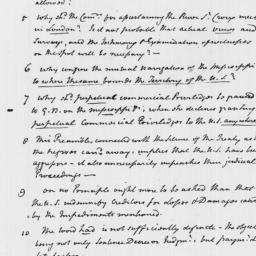 allowed?
5 why shd. the Comrs. for ascertaining the River St. Croix meet
in London? Is it not probable that actual views and
Surveys, and the Testimony & Examination of witnesses
on the spot will be necessary? —
6 why confine the mutual navigation of the Mississippi
to where the same bounds the Territory of the U.S.?
7 why shd. perpetual commercial Privileges be granted
to G.B. on the Mississippi &c. when she declines granting
perpetual Commercial Privileges to the U.S. any where?
8 This Preamble, connected with the Silence of the Treaty as to
the negroes carrd. away, implies that the U.S. have been
aggressors — it also unnecessarily impeaches their judicial
Proceedings —
9 on no Principle ought more to be asked than that
the U.S. indemnify Creditors for losses & Damages
by the Impediments mentioned.
10 The word had is not sufficiently definite — the object
being not only Sentence Decree or Judgmt. but